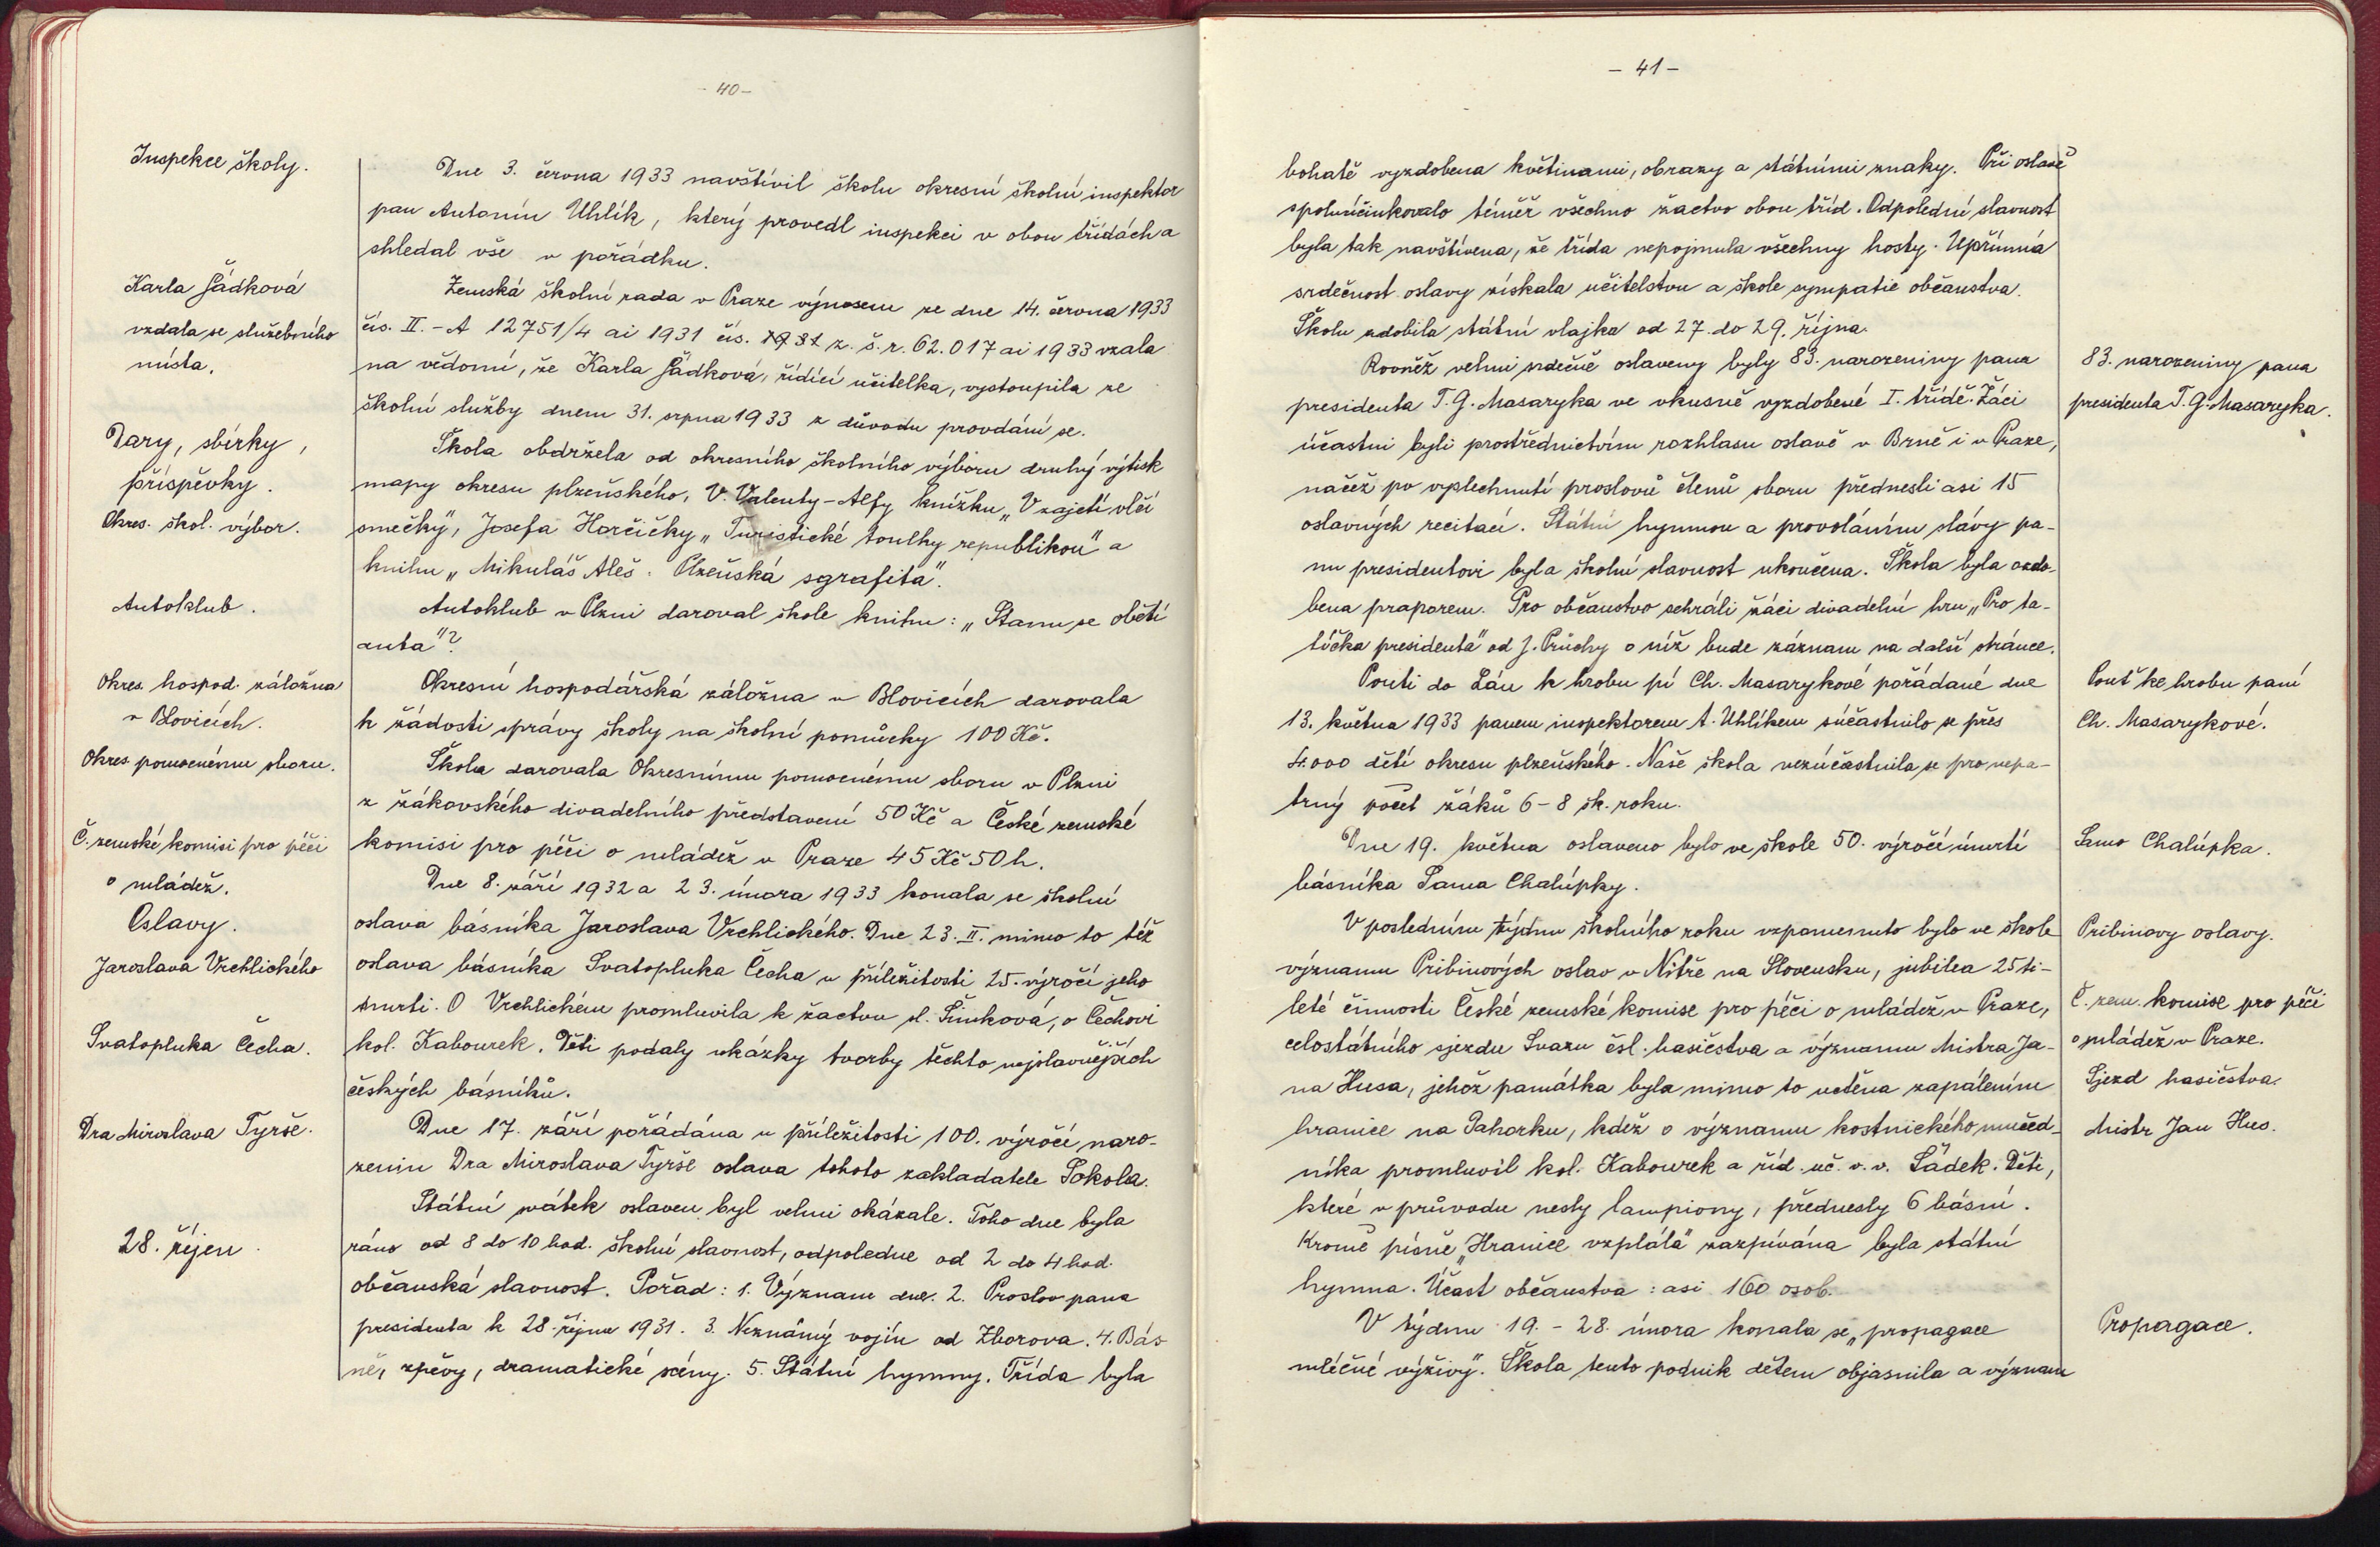 - 40 -
Inspekce školy.
Dne 3. června 1933 navštívil školu okresní školní inspektor
pan Antonín Uhlík, který provedl inspekci v obou třídách a
shledal vše v pořádku.
Karla Sádková
vzdala se služebního
místa.
Zemská školní rada v Praze výnosem ze dne 14. června 1933
čís. II. - A 12751/4 ai 1931 čís. 1931 z. š. r. 62.017 ai 1933 vzala
na vědomí, že Karla Sádková, řídící učitelka, vystoupila ze
školní služby dnem 31. srpna 1933 z důvodu provdání se.
Dary, sbírky,
příspěvky.
Okres. škol. výbor.
Škola obdržela od okresního školního výboru druhý výtisk
mapy okresu plzeňského, V. Valenty-Alfy knížku „V zajetí vlčí
smečky", Josefa Horčičky „Turistické toulky republikou" a
knihu „Mikuláš Aleš. Plzeňská sgrafita".
Autoklub.
Autoklub v Plzni daroval škole knihu: „Stanu se obětí
auta"?
Okres. hospod. záložna
v Blovicích.
Okresní hospodářská záložna v Blovicích darovala
k žádosti správy školy na školní pomůcky 100 Kč.
Okres pomocnému sboru.
Škola darovala Okresnímu pomocnému sboru v Plzni
z žákovského divadelního představení 50 Kč a České zemské
Č. zemské komisi pro péči
o mládež.
komisi pro péči o mládež v Praze 45 Kč 50 h.
Oslavy.
Jaroslava Vrchlického
Dne 8. září 1932 a 23. února 1933 konala se školní
oslava básníka Jaroslava Vrchlického. Dne 23. II. mimo to též
oslava básníka Svatopluka Čecha u příležitosti 25. výročí jeho
smrti. O Vrchlickém promluvila k žactvu sl. Šimková, o Čechovi
Svatopluka Čecha.
kol. Kabourek. Děti podaly ukázky tvorby těchto nejslavnějších
českých básníků.
Dra Miroslava Tyrše.
Dne 17. září pořádána u příležitosti 100. výročí naro-
zenin Dra Miroslava Tyrše oslava tohoto zakladatele Sokola.
28. říjen.
Státní svátek oslaven byl velmi okázale. Toho dne byla
ráno od 8 do 10 hod. školní slavnost, odpoledne od 2 do 4 hod.
občanská slavnost. Pořad: 1. Význam dne. 2. Proslov pana
presidenta k 28. říjnu 1931. 3. Neznámý vojín od Zborova. 4. Bás-
ně, zpěvy, dramatické scény. 5. Státní hymny. Třída byla
- 41 -
bohatě vyzdobena květinami, obrazy a státními znaky. Při oslavě
spoluúčinkovalo téměř všechno žactvo obou tříd. Odpolední slavnost
byla tak navštívena, že třída nepojmula všechny hosty. Upřímná
srdečnost oslavy získala učitelstvu a škole sympatie občanstva.
Školu zdobila státní vlajka od 27. do 29. října.
Rovněž velmi srdečně oslaveny byly 83. narozeniny pana
presidenta T. G. Masaryka ve vkusně vyzdobené I. třídě. Žáci
83. narozeniny pana
presidenta T. G. Masaryka.
účastni byli prostřednictvím rozhlasu oslavě v Brně i v Praze,
načež po vyslechnutí proslovů členů sboru přednesli asi 15
oslavných recitací. Státní hymnou a provoláním slávy pa-
nu presidentovi byla školní slavnost ukončena. Škola byla ozdo-
bena praporem. Pro občanstvo sehráli žáci divadelní hru „Pro ta-
tíčka presidenta" od J. Průchy o níž bude záznam na další stránce.
Pouti do Lán k hrobu pí Ch. Masarykové pořádané dne
13. května 1933 panem inspektorem A. Uhlíkem súčastnilo se přes
Pouť ke hrobu paní
Ch. Masarykové.
4.000 dětí okresu plzeňského. Naše škola nezúčastnila se pro nepa-
trný počet žáků 6-8 šk. roku.
Dne 19. května oslaveno bylo ve škole 50. výročí úmrtí
básníka Sama Chalúpky.
Samo Chalúpka.
V posledním týdnu školního roku vzpomenuto bylo ve škole
významu Pribinových oslav v Nitře na Slovensku, jubilea 25 ti-
Pribinovy oslavy.
leté činnosti České zemské komise pro péči o mládež v Praze,
Č. zem. komise pro péči
o mládež v Praze.
celostátního sjezdu Svazu čsl. hasičstva a významu Mistra Ja-
na Husa, jehož památka byla mimo to uctěna zapálením
Sjezd hasičstva.
hranice na Pahorku, kdež o významu kostnického mučed-
Mistr Jan Hus.
níka promluvil kol. Kabourek a říd. uč. v. v. Sádek. Děti,
které v průvodu nesly lampiony, přednesly 6 básní.
Kromě písně „Hranice vzplála" zazpívána byla státní
hymna. Účast občanstva: asi 160 osob.
V týdnu 19. - 28. února konala se „propagace
mléčné výživy". Škola tento podnik dětem objasnila a význam
Propagace.